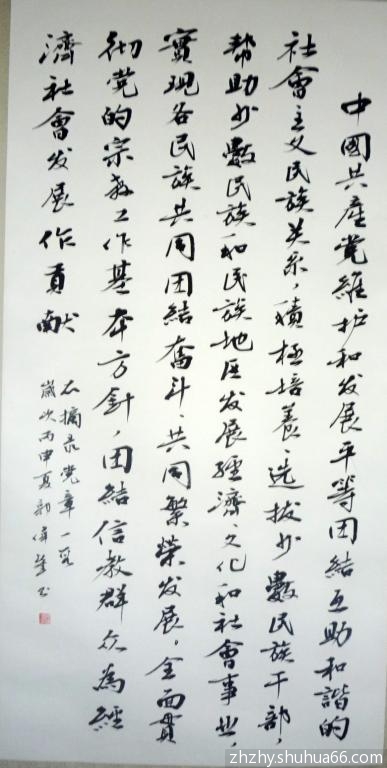 中國共產党維护和发展平等团結互助和諧的
社會主义民族关系，積極培養、选拔少數民族干部，
幫助少數民族和民族地区发展經濟、文化和社會事业，
實現各民族共同团結奮斗、共同繁榮发展。全面貫
彻党的宗教工作基本方針，团結信教群众為經
濟社會发展作貢献
右摘录党章一段
歲次丙申夏
zhzhy.shuhua66.com